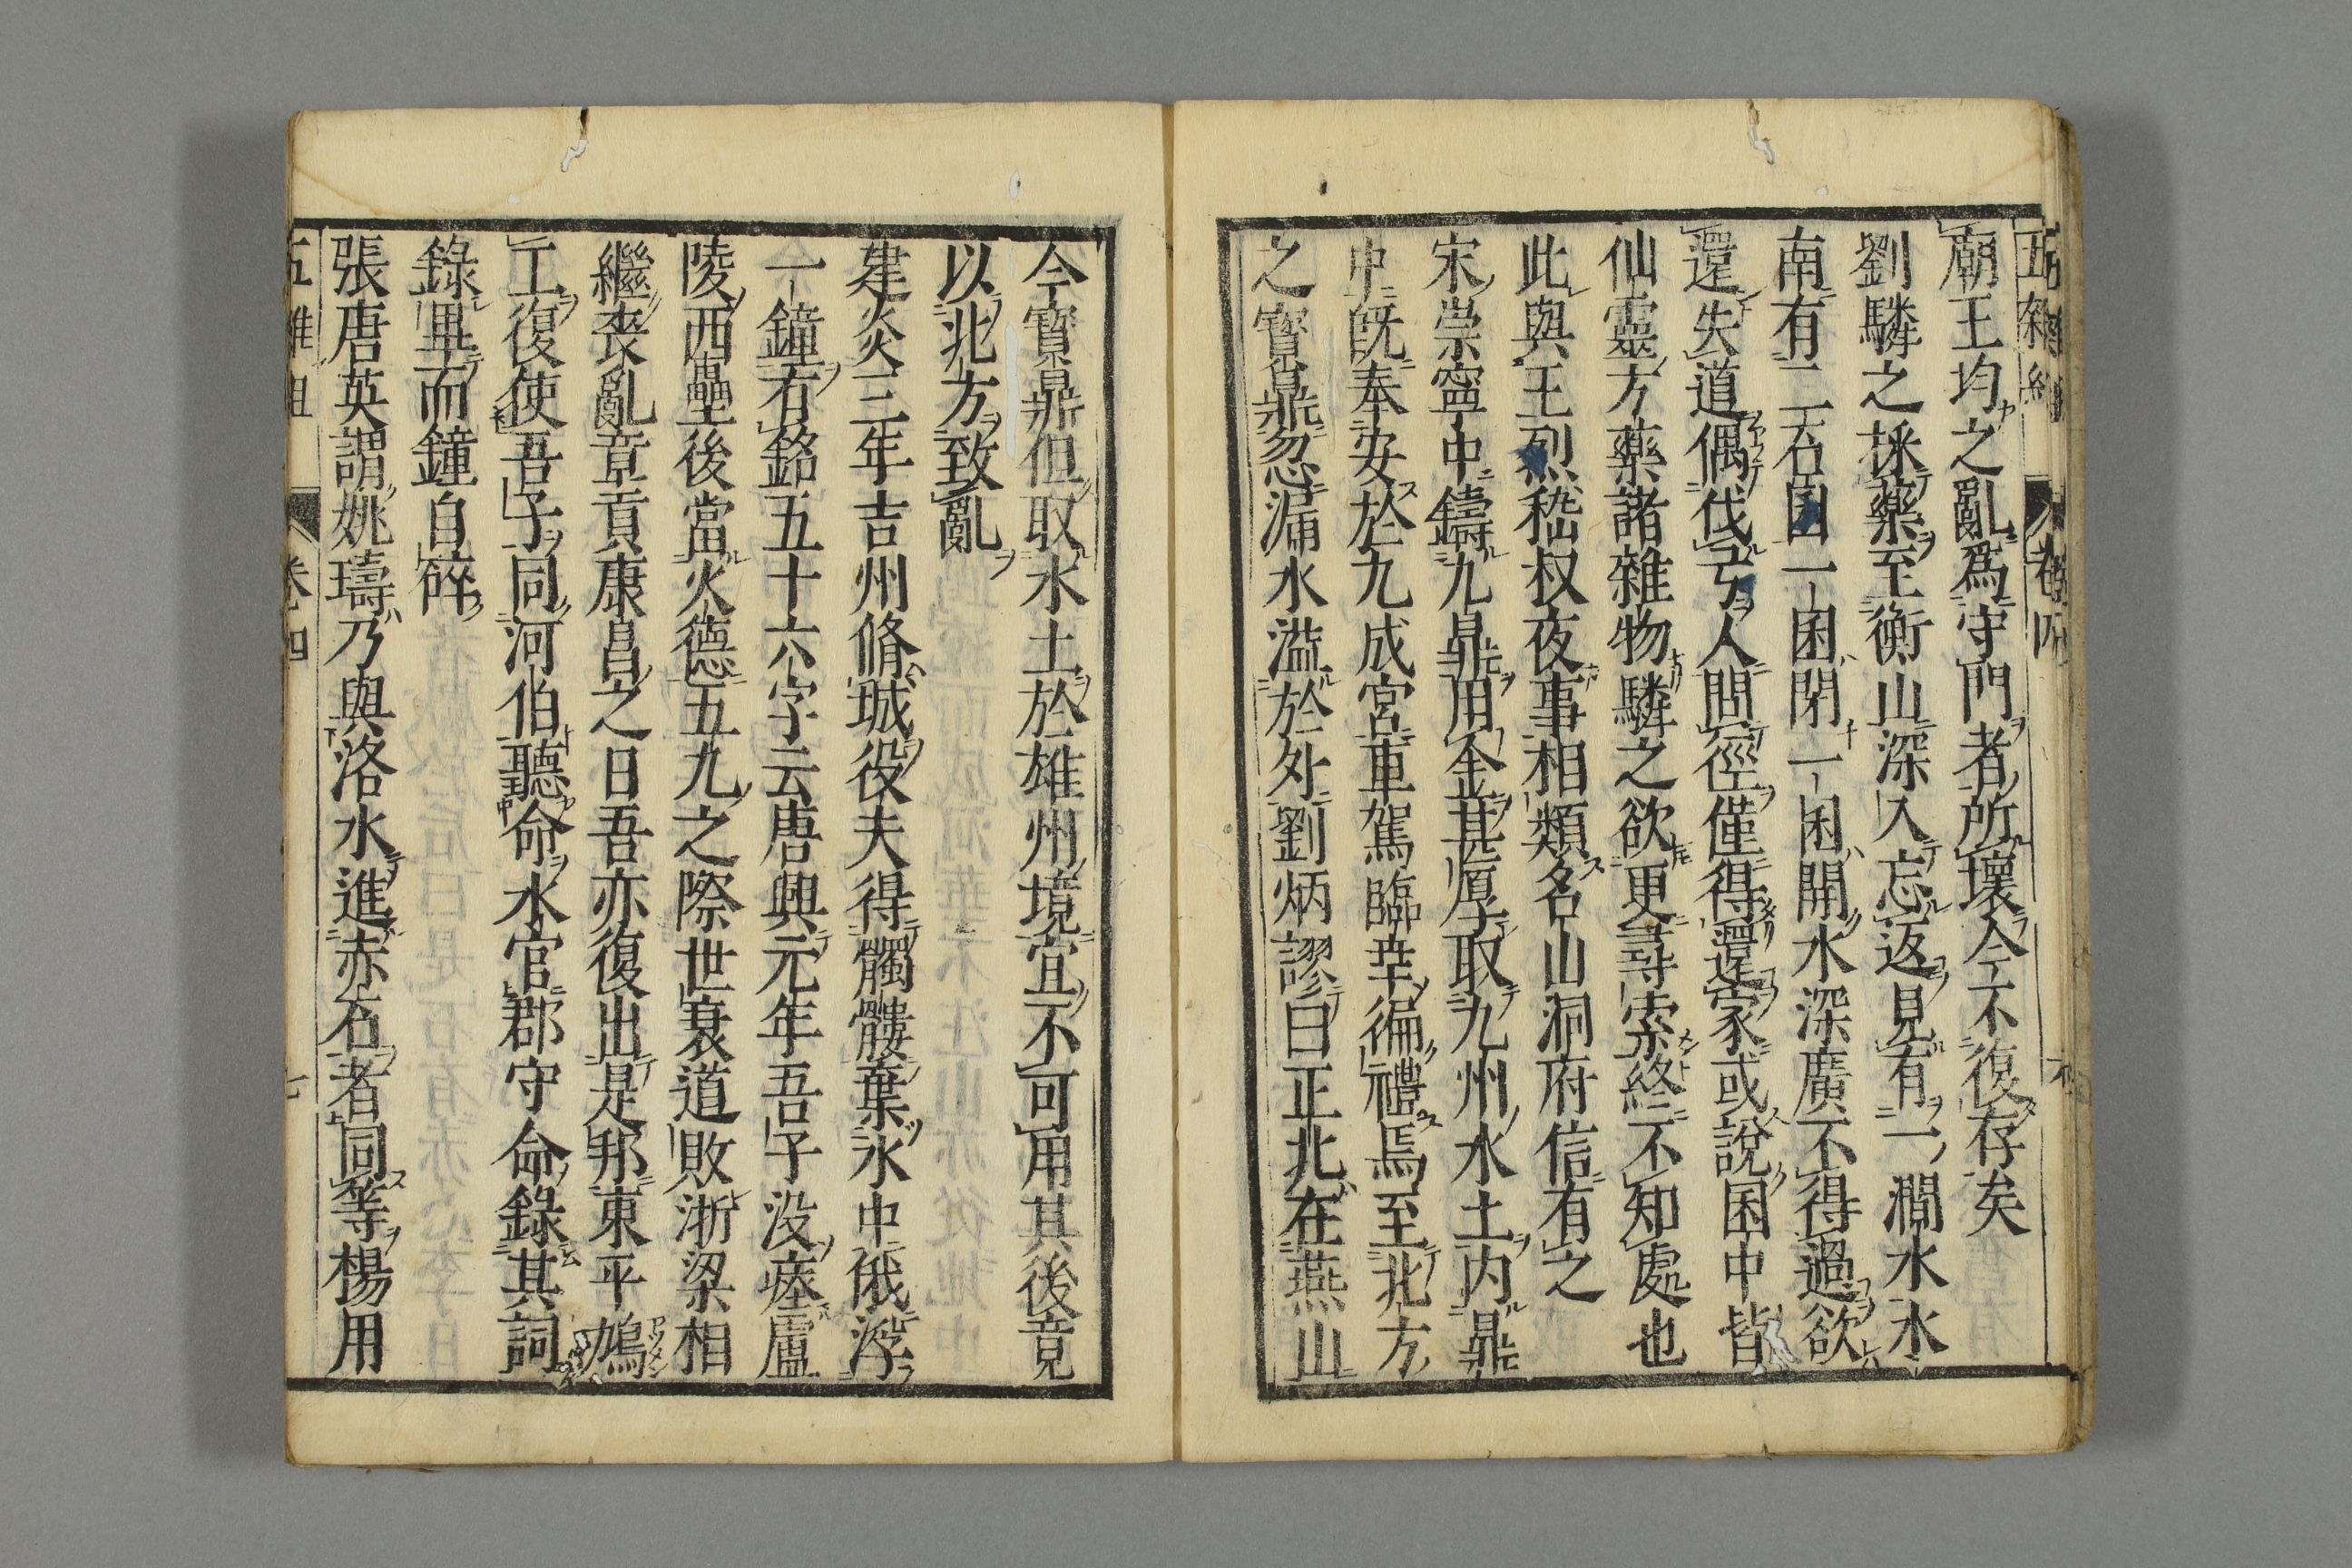 五雜組 卷四
廟王均之亂爲守門者所壞今不復存矣
劉驎之採藥至衡山深入忘返見有一澗水水
南有二石囷一囷閉一囷開水深廣不得過欲
還失道偶伐弓人問徑僅得還家或說囷中皆
仙靈方藥諸雜物驎之欲更尋索終不知處也
此與王烈嵇叔夜事相類名山洞府信有之
宋崇寧中鑄九鼎用金甚厚取九州水土内鼎
中既奉安於九成宮車駕臨幸徧禮焉至北方
之寶鼎忽漏水溢於外劉炳謬曰正北在燕山
今寶鼎但取水土於雄州境宜不可用其後竟
以北方致亂
建炎三年吉州脩城役夫得髑髏棄水中俄浮
一鐘有銘五十六字云唐興元年吾子没瘞廬
陵西壘後當火德五九之際世衰道敗浙梁相
繼喪亂章貢康昌之日吾亦復出是邦東平鳩
工復使吾子同河伯聽命水官郡守命錄其詞
錄畢而鐘自碎
張唐英謂姚璹乃與洛水進赤石者同等楊用
五雜組 卷四 七